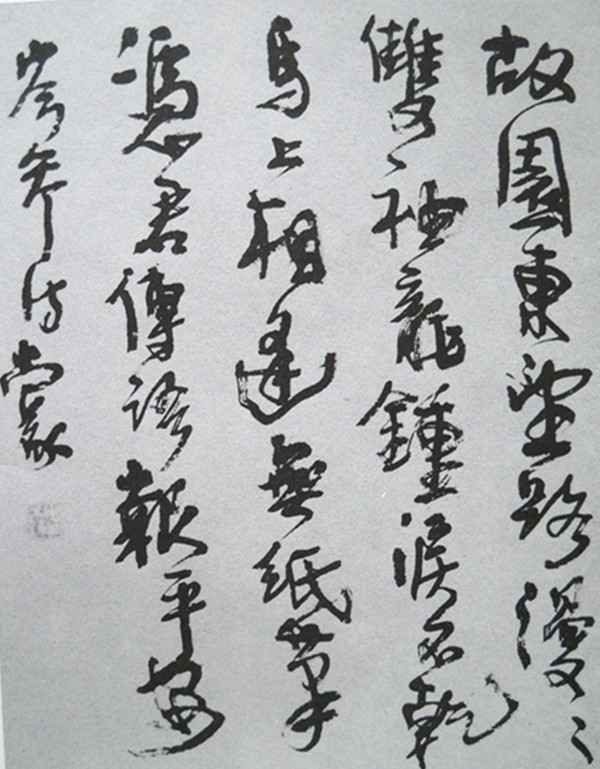 故園東望路漫〻
雙袖龍鍾淚不乾
馬上相逢無紙筆
憑君傳語報平安
岑參詩 蒙